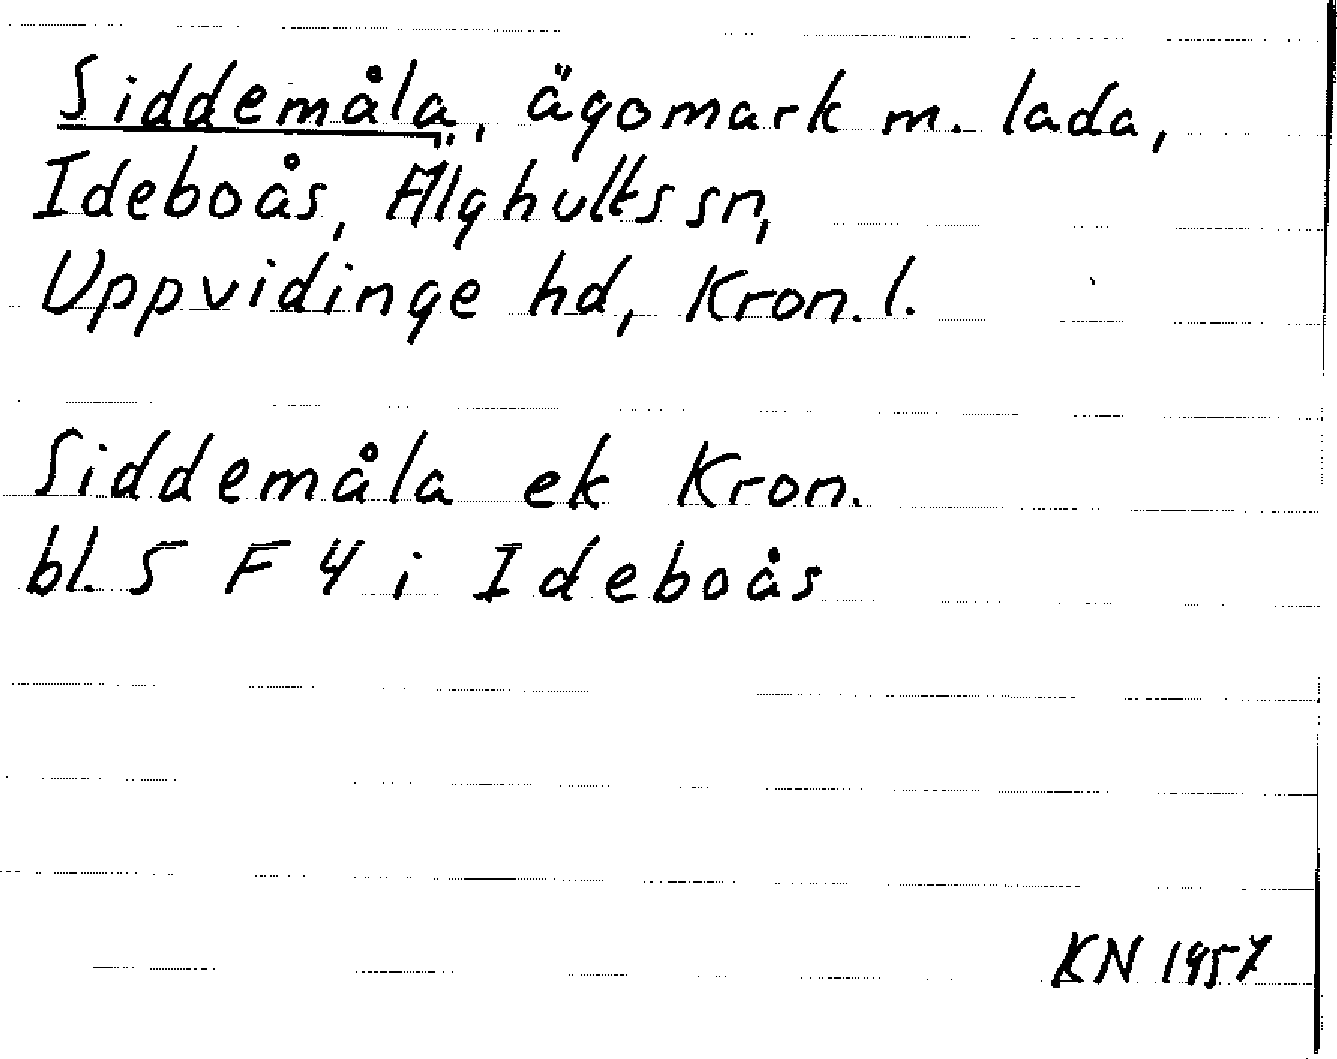 Siddemåla, ägomark m. lada,
Ideboås, Älghults sn,
Uppvidinge hd, Kron. l.
Siddemåla ek Kron.
bl. 5 F 4 i Ideboås
KN 1957